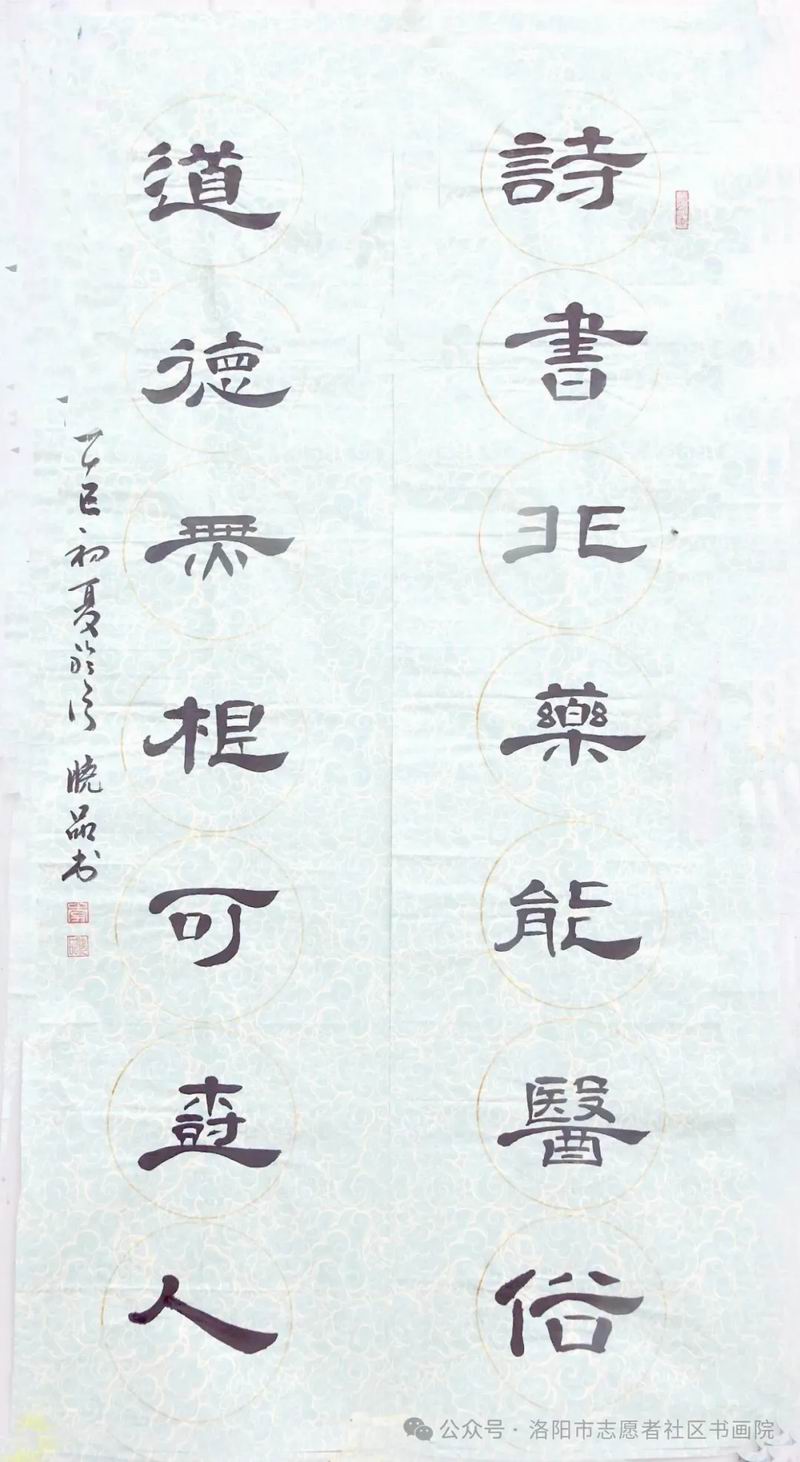 詩書非藥能醫俗
道德無根可樹人
乙巳初夏於洛 晓品书
公众号 · 洛阳市志愿者社区书画院